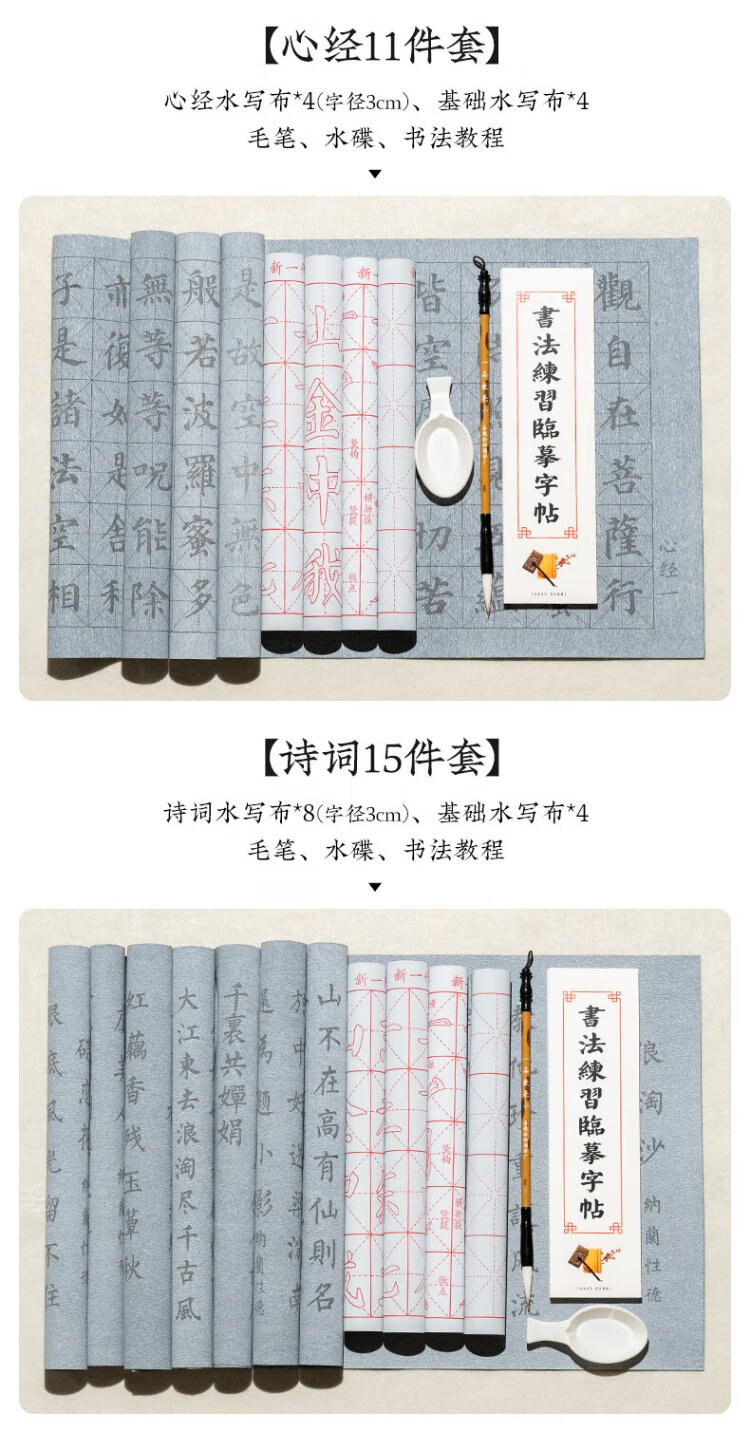 【心经11件套】
心经水写布*4(字径3cm)、基础水写布*4
毛笔、水碟、书法教程
子是諸法空相
亦復如是舍利
無等等呪能除
般若波羅蜜多
是故空中無色
新一
上金中我
竖钩
横折提
竖提
撇点
新
皆空
切苦
書法練習臨摹字帖
觀自在菩薩行
心经一
【诗词15件套】
诗词水写布*8(字径3cm)、基础水写布*4
毛笔、水碟、书法教程
眼底風光留不住
红藕香残玉簟秋
大江東去浪淘尽千古風
千裏共嬋娟
山不在高有仙則名
新一
新一
新
竖钩
横折提
竖提
撇点
書法練習臨摹字帖
浪淘沙
納蘭性德